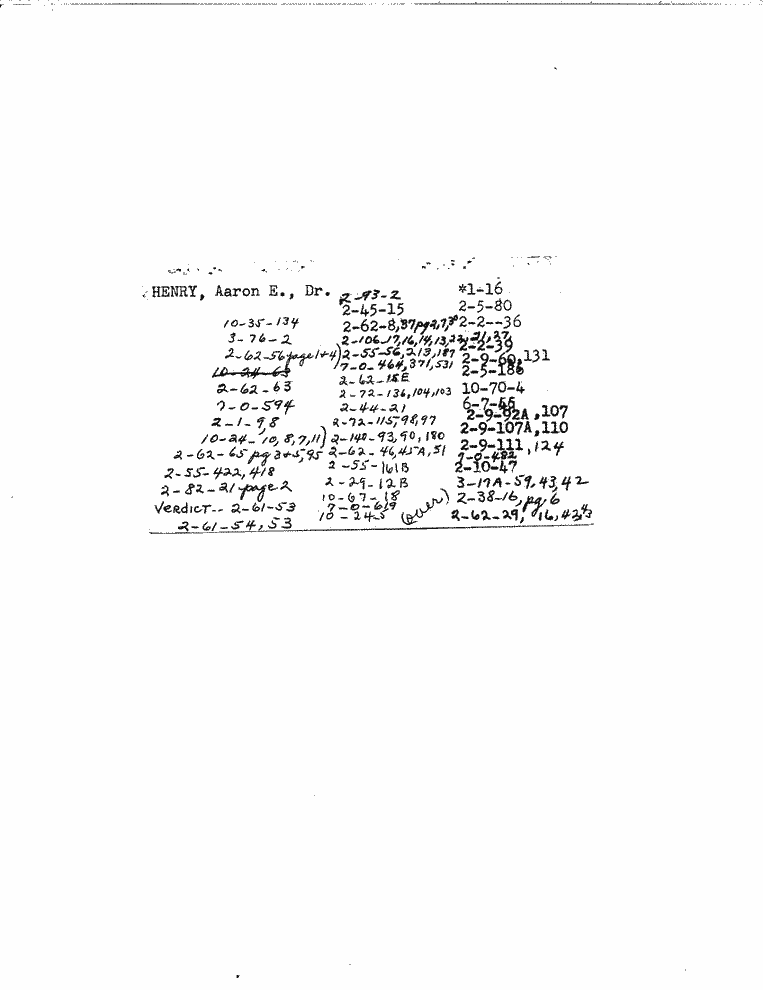 HENRY, Aaron E., Dr. 2-93-2 *1-16
2-45-15 2-5-80
10-35-134 2-62-8,37pg2,7,30 2-2--36
3-76-2 2-106-17,16,14,13,
2-2-39
2-62-56 page 1+4) 2-55-56,213,187
2-9-60,131
10-24-63 7-0-464,371,531 2-5-186
2-62-63 2-62-18E
2-72-136,104,103 10-70-4
7-0-594 2-44-21 6-7-
2-9-92A,107
2-1-98 2-72-115,98,97
2-9-107A,110
10-24-10,8,7,11) 2-140-93,90,180
2-9-111,124
2-62-65 pg 3+5,95 2-62-46,45A,51
7-0-482
2-55-422,418 2-55-161B 2-10-47
2-82-21 page 2 2-29-12B 3-17A-59,43,42
10-67-18 2-38-16, pg. 6
Verdict-- 2-61-53 7-0-619
2-61-54,53 10-245 (over) 2-62-29,